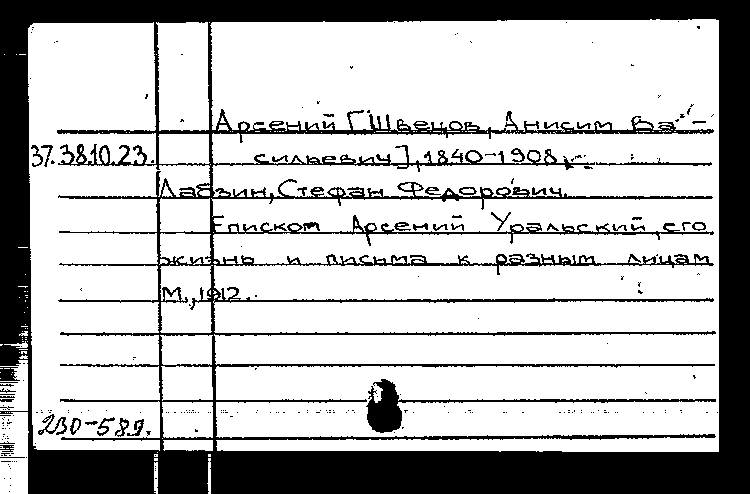 Арсений [Швецов, Анисим Ва-
37.38.10.23. сильевич], 1840-1908.
Лабзин, Стефан Федорович.
Епископ Арсений Уральский, его
жизнь и письма к разным лицам
М., 1912.
230-589.